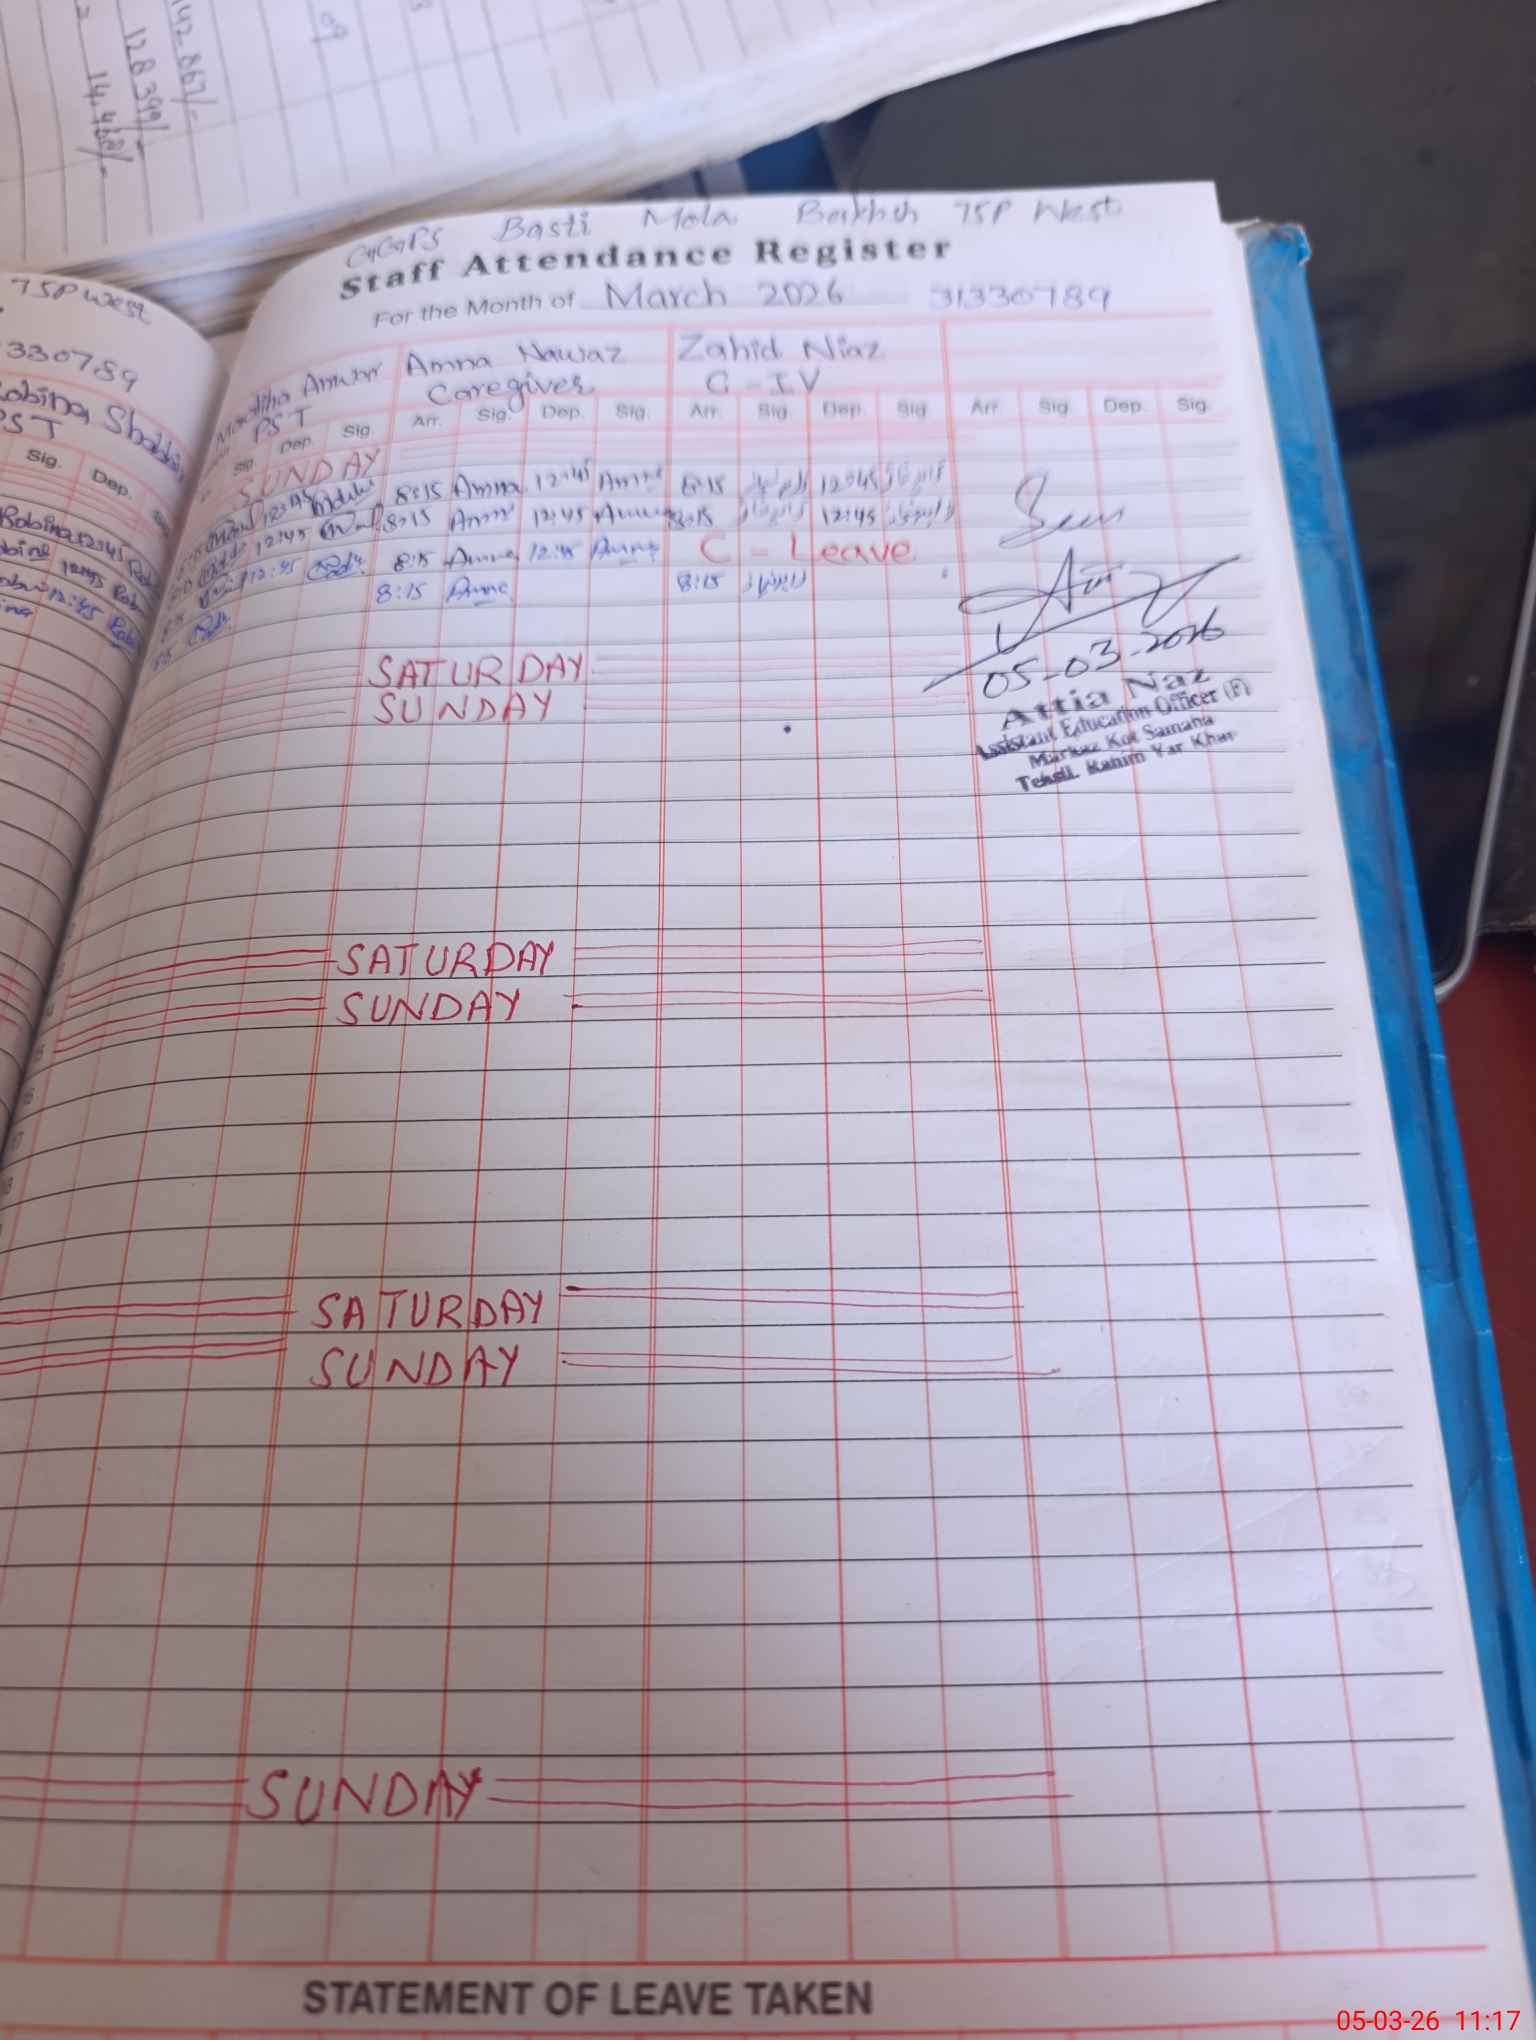 142.867/-
128.399/-
14.468/-
09
75P West
330789
Robina Shabbir
PST
Sig. Dep.
Robina 12:45 Rob
12:45 Rob
12:45 Rob
GGPS Basti Mola Bakhsh 75P West
Staff Attendance Register
For the Month of March 2026 31330789
Madiha Anwar Amna Nawaz Zahid Niaz
PST Caregiver C - IV
Sig. Dep. Sig. Arr. Sig. Dep. Sig. Arr. Sig. Dep. Sig. Arr. Sig. Dep. Sig.
SUNDAY
12:45 8:15 Amna 12:45 Amna 8:15 زاہد نیاز 12:45 زاہد نیاز
12:45 8:15 Amna 12:45 Amna 8:15 زاہد نیاز 12:45 زاہد نیاز
12:45 8:15 Amna 12:45 Amna C - Leave
8:15 Amna 8:15 زاہد نیاز
Seen
05-03-2026
Attia Naz
Assistant Education Officer (F)
Markaz Kot Samaba
Tehsil Rahim Yar Khan
SATURDAY
SUNDAY
SATURDAY
SUNDAY
SATURDAY
SUNDAY
SUNDAY
STATEMENT OF LEAVE TAKEN
05-03-26 11:17